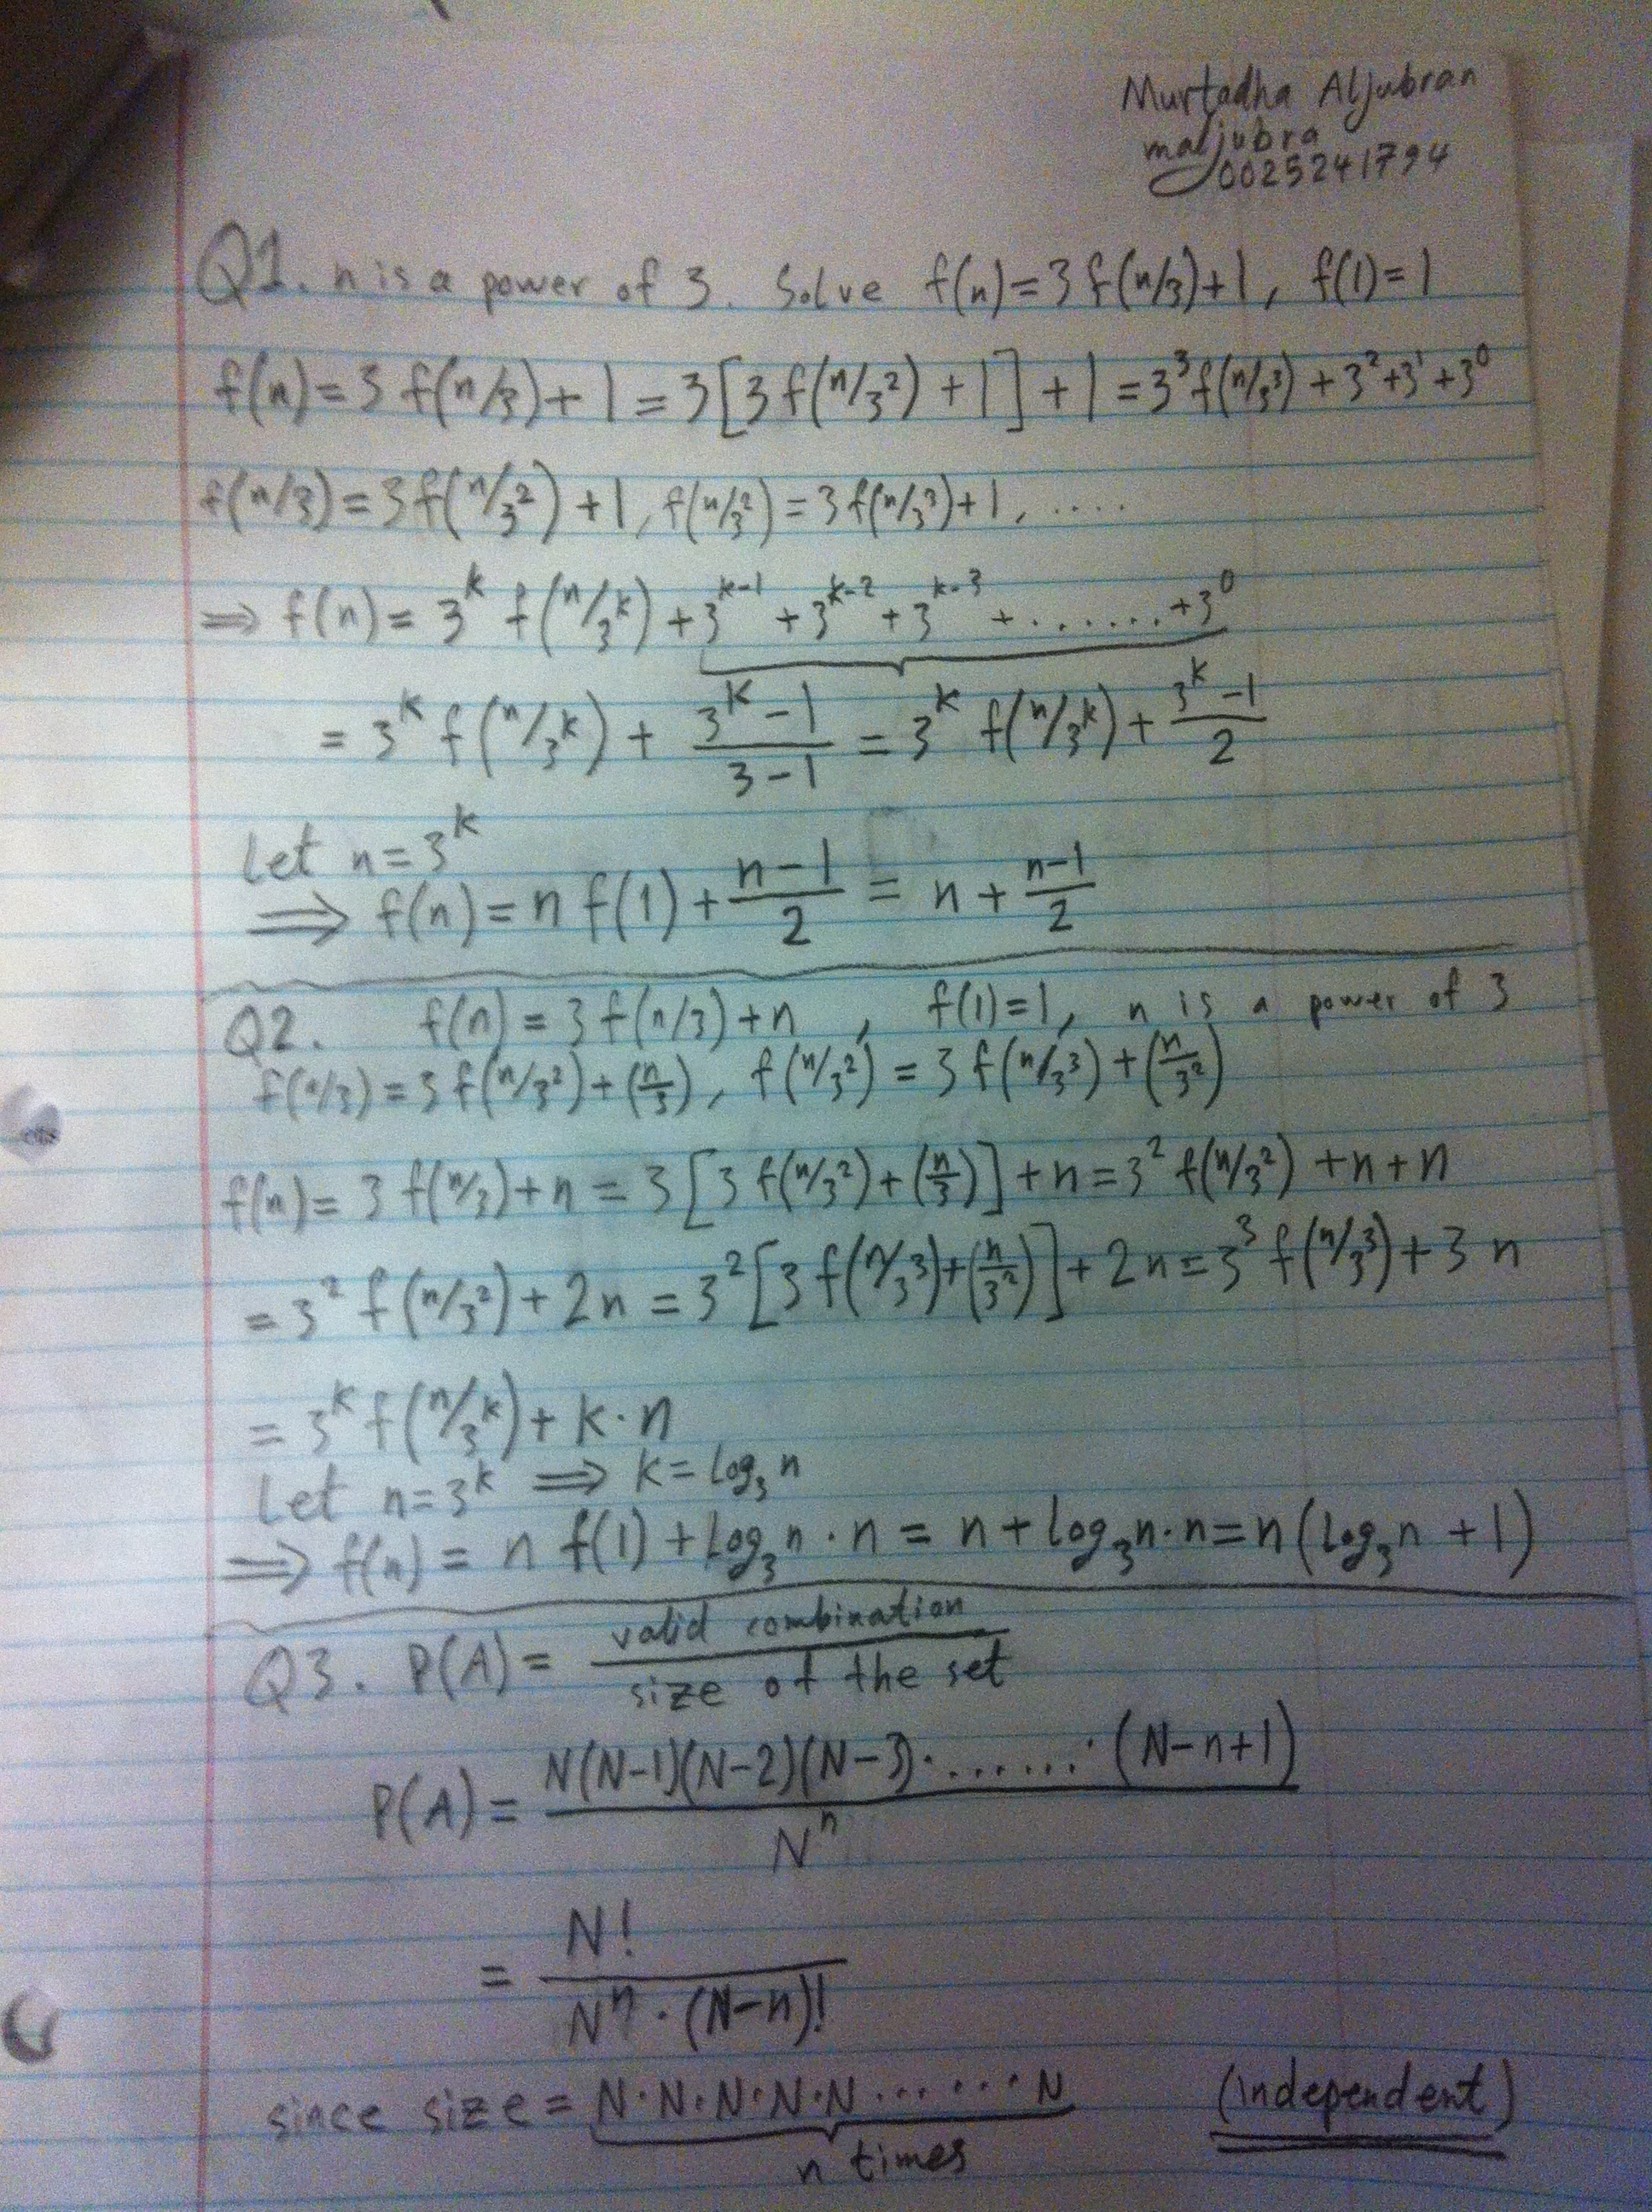 Murtadha Aljubran
maljubra
0025241794
Q1. n is a power of 3. Solve f(n)=3f(n/3)+1, f(1)=1
f(n)=3f(n/3)+1=3[3f(n/3²)+1]+1=3³f(n/3³)+3²+3¹+3⁰
f(n/3)=3f(n/3²)+1, f(n/3²)=3f(n/3³)+1, ....
⇒ f(n)=3^k f(n/3^k)+3^(k-1)+3^(k-2)+3^(k-3)+.......+3⁰
=3^k f(n/3^k)+(3^k-1)/(3-1)=3^k f(n/3^k)+(3^k-1)/2
Let n=3^k
⇒ f(n)=n f(1)+(n-1)/2=n+(n-1)/2
Q2. f(n)=3f(n/3)+n, f(1)=1, n is a power of 3
f(n/3)=3f(n/3²)+(n/3), f(n/3²)=3f(n/3³)+(n/3²)
f(n)=3f(n/3)+n=3[3f(n/3²)+(n/3)]+n=3²f(n/3²)+n+n
=3²f(n/3²)+2n=3²[3f(n/3³)+(n/3²)]+2n=3³f(n/3³)+3n
=3^k f(n/3^k)+k·n
Let n=3^k ⇒ k=log₃n
⇒ f(n)=n f(1)+log₃n·n=n+log₃n·n=n(log₃n+1)
Q3. P(A)=valid combination/size of the set
P(A)=N(N-1)(N-2)(N-3)·.......·(N-n+1)/N^n
=N!/N^n·(N-n)!
since size=N·N·N·N·N·······N (independent)
n times